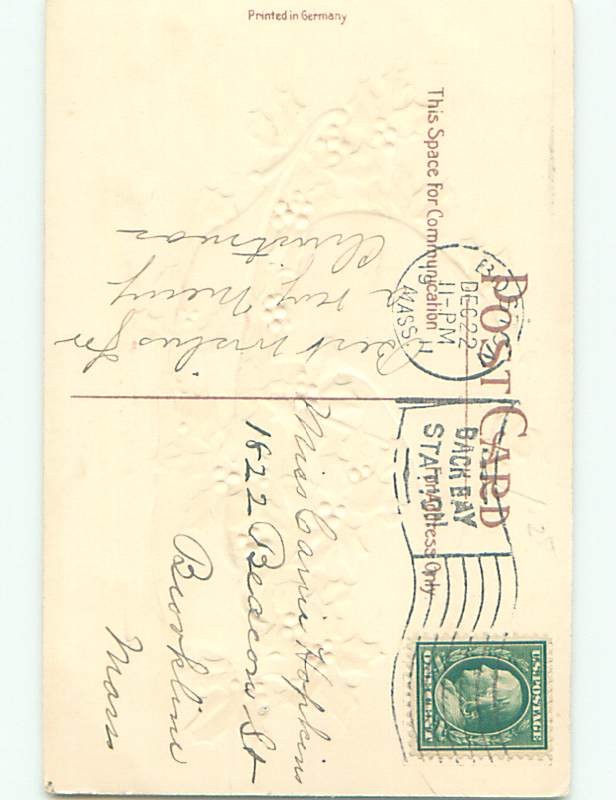 Printed in Germany
POST CARD
This Space For Communication
For Address Only
BACK BAY
STATION
DEC 22
11-PM
MASS.
U.S. POSTAGE
Best wishes for
a very Merry
Christmas
Miss Carrie Hopkins
1822 Beacon St
Brookline
Mass